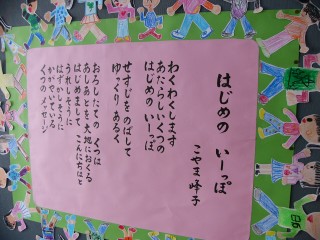 はじめの いーっぽ
こやま峰子
わくわくします
あたらしいくつの
はじめの いーっぽ
せすじをのばして
ゆっくり あるく
おろしたての くつは
あしあとを 大地におくる
はじめまして こんにちはと
うれしそうに
はずかしそうに
かがやいている
くつの メッセージ